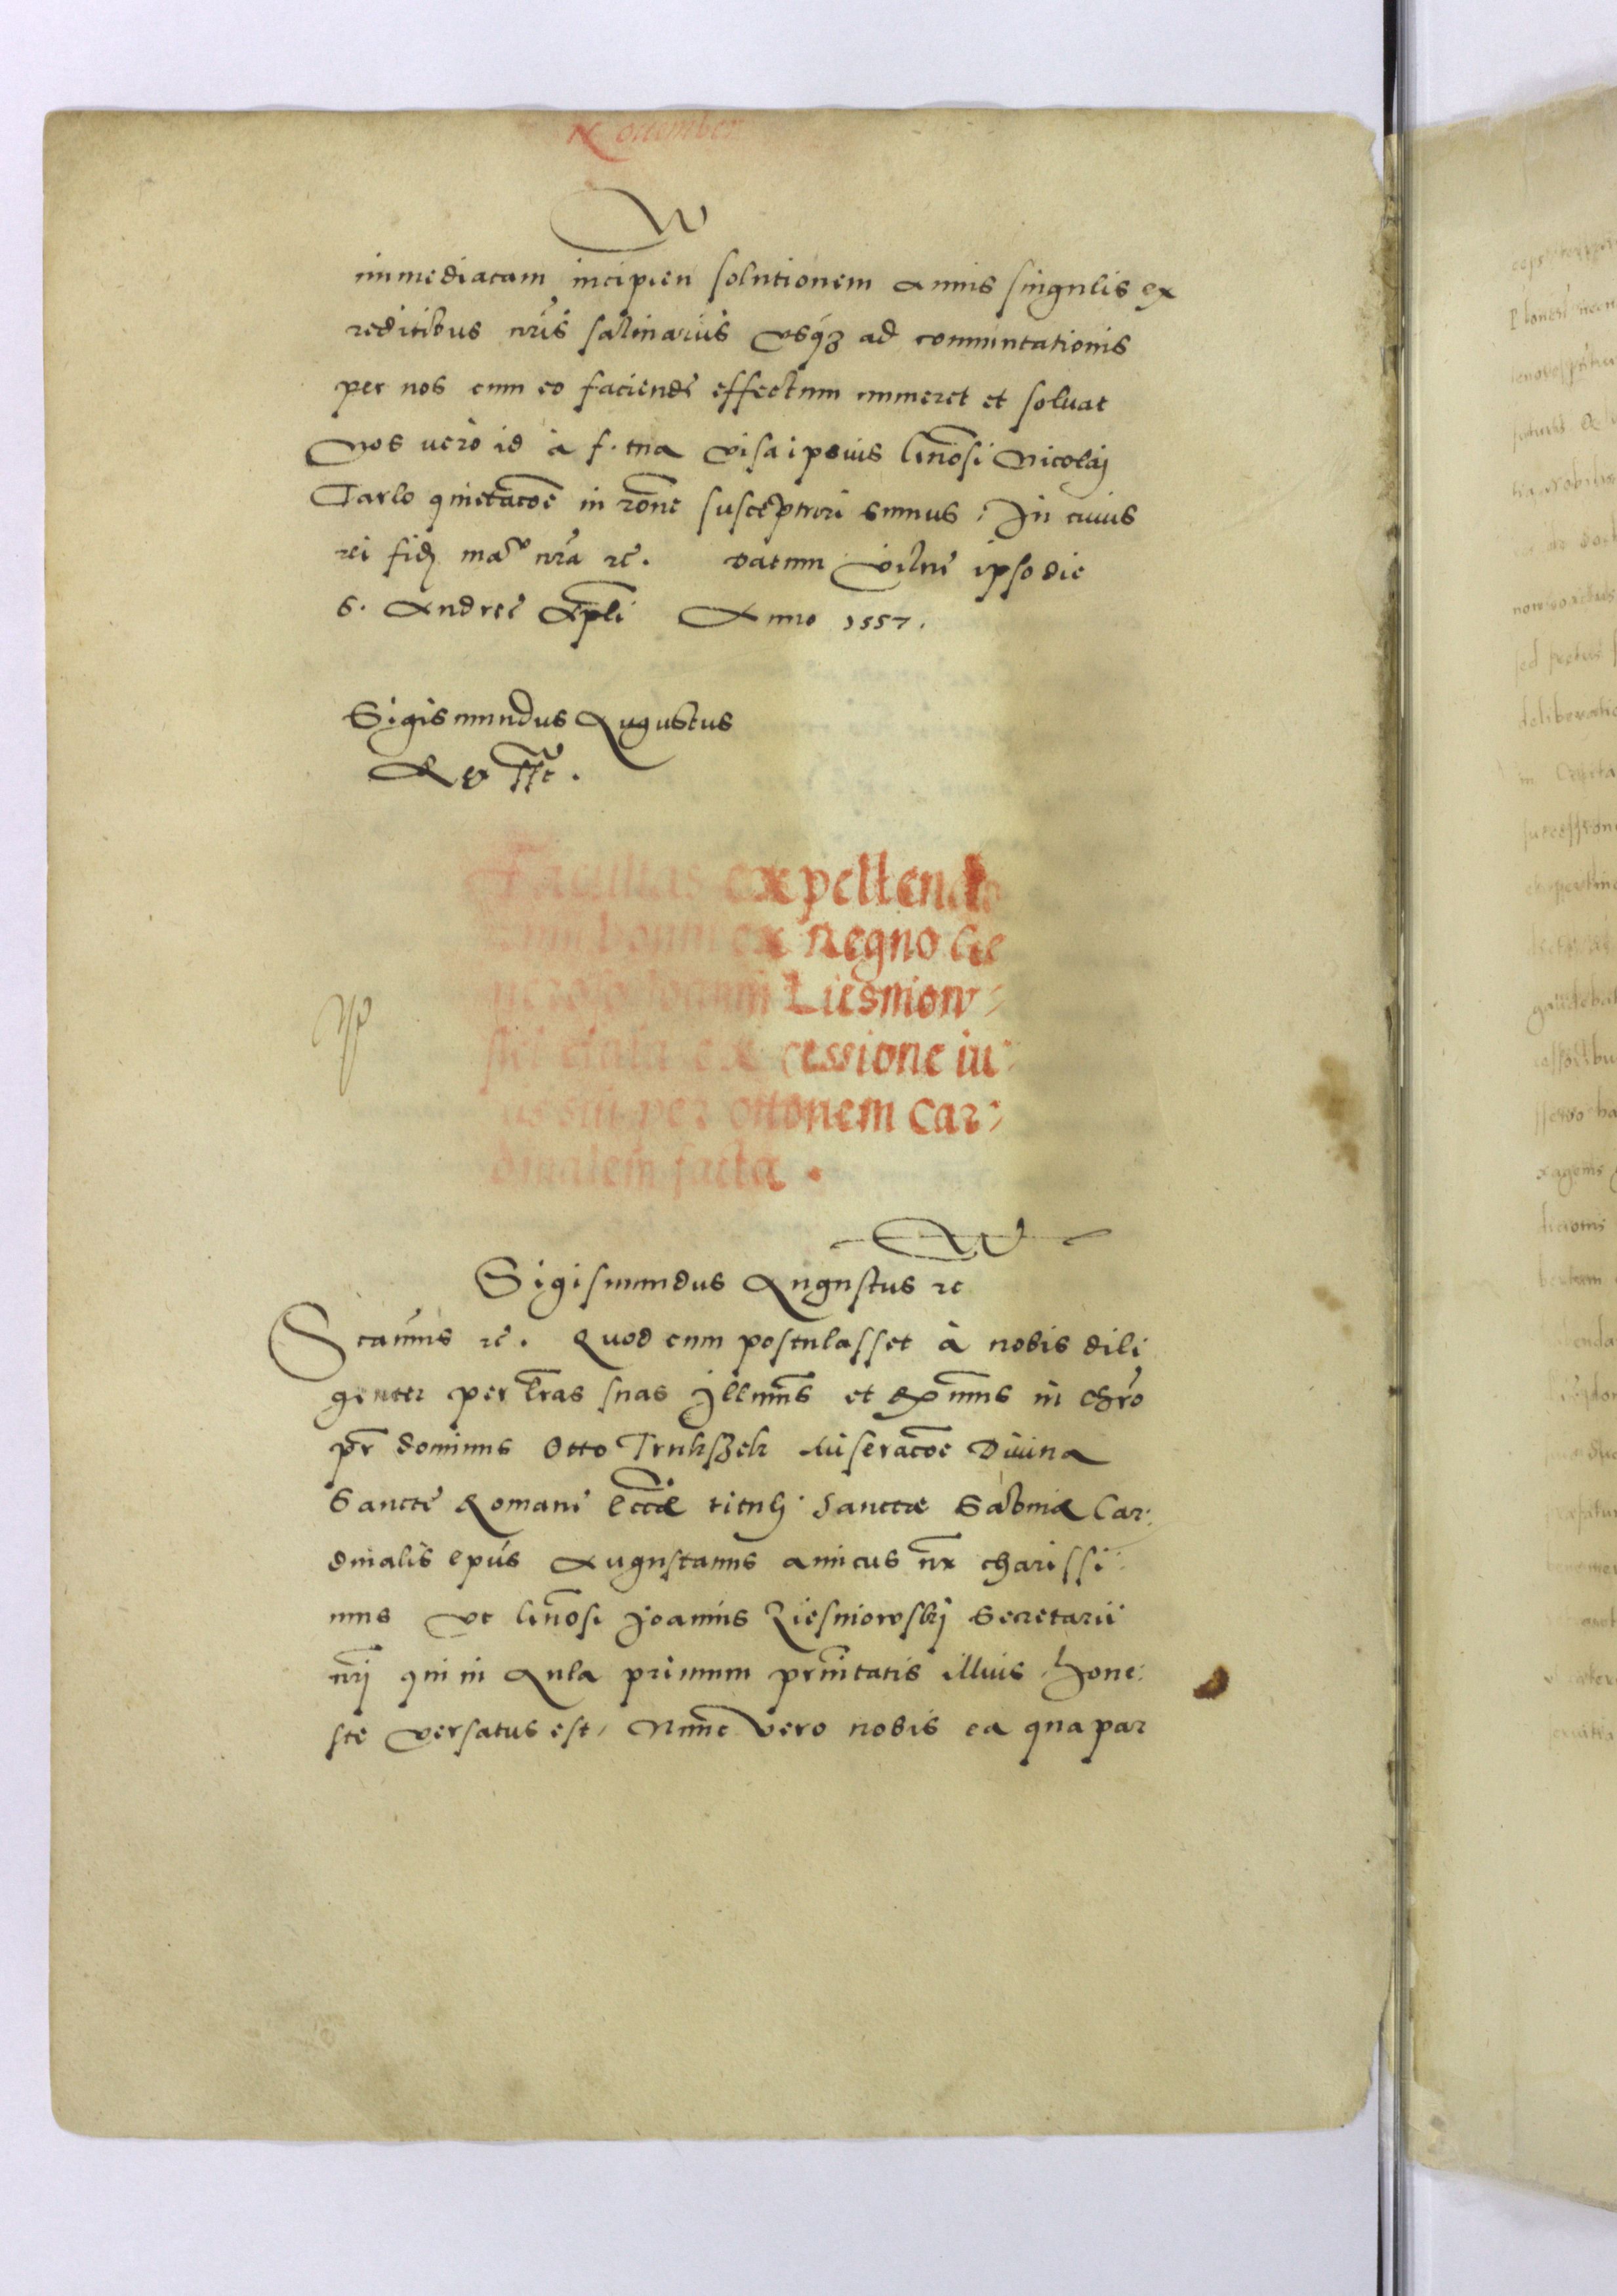 Nouember
immediatam incipien solutionem annis singulis ex
reditibus nr̃is salinariis vsq́ȝ ad commutationis
per nos cum eo faciende effectum numeret et soluat
Nos uero id à f. tua visa ipsius Gn̄osi Nicolaj
Tarlo quietac̄oe in ron̄e suscepturi sumus. In cuius
rei fidȩ nr̃a rc̃. Datum Vilne ipso die
S. Andreȩ Apl̄i Anno 1557.
Sigismundus Augustus
Rex
Facultas expellendo
bonu ex Regno Ge
neroso Joanni Liesniow
ski data ex cessione iu
per Ottonem Car:
dinalem facta.
Sigismundus Augustus rc
Scam̃us rc̃. Quod cum postulasset à nobis dili
genter per l̄ras suas Jllmūs et Rx̄mus in Chr̃o
pr̄ dominus Otto Trukszek Miserac̄oe Diuina
Sancte Romane Ecc̄læ tituli Sanctæ Sabinæ Car:
dinalis epũs Augustanus amicus nr̄ charissi:
mus vt Gn̄osi Joannis Liesniowskij Secretarii
nr̄j qui in Aula primum prn̄itatis illius hone:
ste versatus est, Nunc vero nobis ea qua par